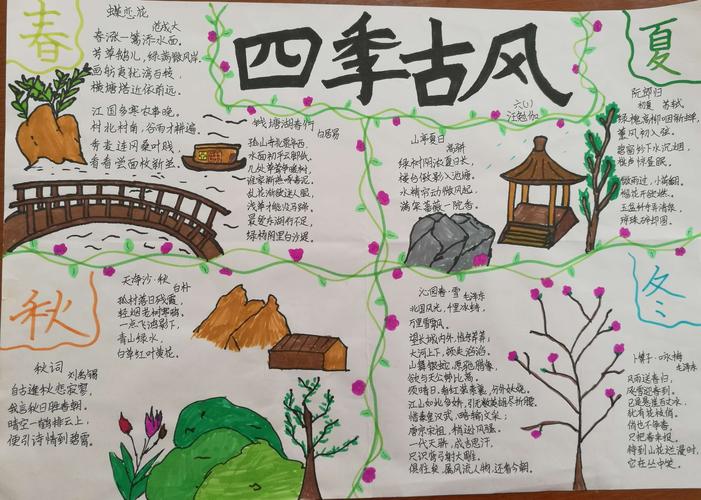 春
四季古风
夏
六(1)
蝶恋花
范成大
春涨一篙添水面。
芳草鹅儿,绿满微风岸。
画舫夷犹湾百转,
横塘塔近依前远。
江国多寒农事晚。
村北村南,谷雨才耕遍。
秀麦连冈桑叶贱。
看看尝面收新茧。
钱塘湖春行
白居易
孤山寺北贾亭西,
水面初平云脚低。
几处早莺争暖树,
谁家新燕啄春泥。
乱花渐欲迷人眼,
浅草才能没马蹄。
最爱湖东行不足,
绿杨阴里白沙堤。
山亭夏日
高骈
绿树阴浓夏日长,
楼台倒影入池塘。
水精帘动微风起,
满架蔷薇一院香。
阮郎归
初夏 苏轼
绿槐高柳咽新蝉,
薰风初入弦。
碧窗纱下水沉烟,
棋声惊昼眠。
微雨过,小荷翻。
榴花开欲燃。
玉盆纤手弄清泉,
琼珠碎却圆。
秋
天净沙·秋
白朴
孤村落日残霞,
轻烟老树寒鸦,
一点飞鸿影下,
青山绿水,
白草红叶黄花。
秋词
刘禹锡
自古逢秋悲寂寥,
我言秋日胜春朝。
晴空一鹤排云上,
便引诗情到碧霄。
冬
沁园春·雪 毛泽东
北国风光,千里冰封,
万里雪飘。
望长城内外,惟余莽莽;
大河上下,顿失滔滔。
山舞银蛇,原驰蜡象,
欲与天公试比高。
须晴日,看红装素裹,分外妖娆。
江山如此多娇,引无数英雄竞折腰。
惜秦皇汉武,略输文采;
唐宗宋祖,稍逊风骚。
一代天骄,成吉思汗,
只识弯弓射大雕。
俱往矣,数风流人物,还看今朝。
卜算子·咏梅
毛泽东
风雨送春归,
飞雪迎春到。
已是悬崖百丈冰,
犹有花枝俏。
俏也不争春,
只把春来报。
待到山花烂漫时,
它在丛中笑。